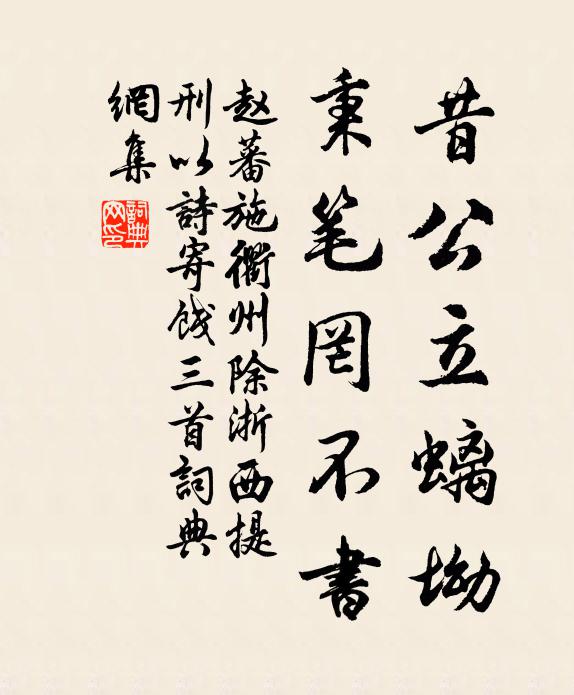 昔公立螭坳
秉笔罔不書
赵蕃施衢州除浙西提
刑以詩寄饯三首詞典
網集
詞典网印